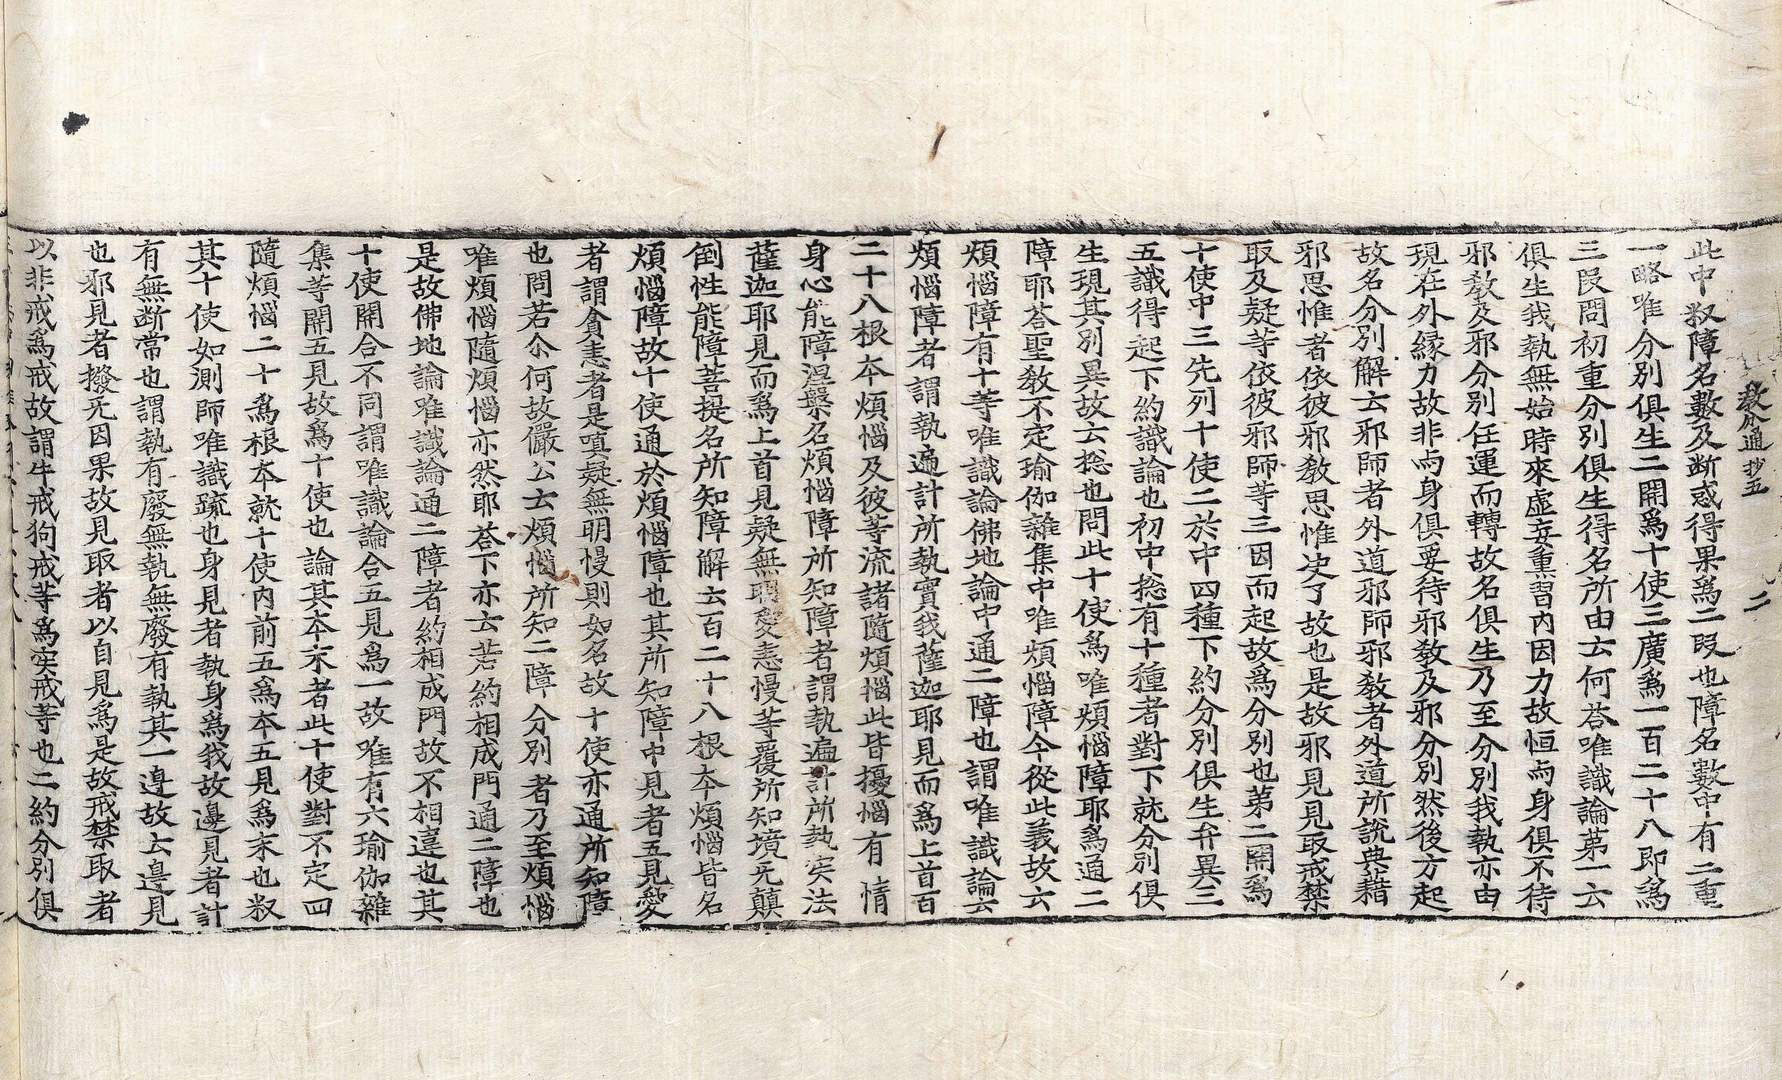 教分通抄五 二
此中叙障名數及断惑得果爲二段也障名數中有二重
一略唯分別俱生二開爲十使三廣爲一百二十八即爲
三段問初重分別俱生得名所由云何荅唯識論第一六
俱生我執無始時來虛妄熏習內因力故恒与身俱不待
邪教及邪分別任運而轉故名俱生乃至分別我執亦由
現在外縁力故非与身俱要待邪教及邪分別然後方起
故名分別解云邪師者外道邪師邪教者外道所說典藉
邪思惟者依彼邪教思惟决了故也是故邪見見取戒禁
取及疑等依彼邪師等三因而起故爲分別也第二開爲
十使中三先列十使二於中四種下約分別俱生弁異三
五識得起下約識論也初中捴有十種者對下就分別俱
生現其別異故云捴也問此十使爲唯煩惱障耶爲通二
障耶荅聖教不定瑜伽雜集中唯煩惱障今從此義故六
煩惱障有十等唯識論佛地論中通二障也謂唯識論云
煩惱障者謂執遍計所執實我薩迦耶見而爲上首百
二十八根本煩惱及彼等流諸隨煩惱此皆擾惱有情
身心能障涅槃名煩惱障所知障者謂執遍計所執实法
薩迦耶見而爲上首見疑無明愛恚慢等覆所知境无顛
倒性能障菩提名所知障解云百二十八根本煩惱皆名
煩惱障故十使通於煩惱障也其所知障中見者五見愛
者謂貪恚者是嗔疑無明慢則如名故十使亦通所知障
也問若尒何故儼公云煩惱所知二障分別者乃至煩惱
唯煩惱隨煩惱亦然耶荅下亦云若約相成門通二障也
是故佛地論唯識論通二障者約相成門故不相違也其
十使開合不同謂唯識論合五見爲一故唯有六瑜伽雜
集等開五見故爲十使也論其本末者此十使對不定四
隨煩惱二十爲根本就十使內前五爲本五見爲末也叙
其十使如測師唯識疏也身見者執身爲我故邊見者計
有無断常也謂執有廢無執無廢有執其一邊故云邊見
也邪見者撥无因果故見取者以自見爲是故戒禁取者
以非戒爲戒故謂牛戒狗戒等爲实戒等也二約分別俱